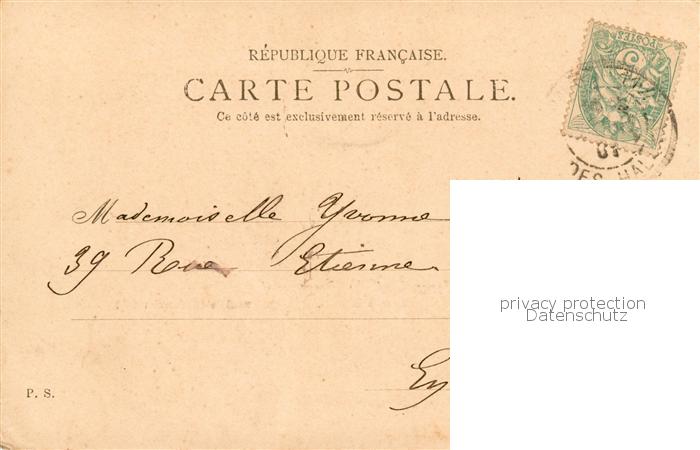 RÉPUBLIQUE FRANÇAISE.
CARTE POSTALE.
Ce côté est exclusivement réservé à l'adresse.
POSTES
01
DES HAL
Mademoiselle Yvonne
39 Rue Etienne
privacy protection
Datenschutz
P. S.